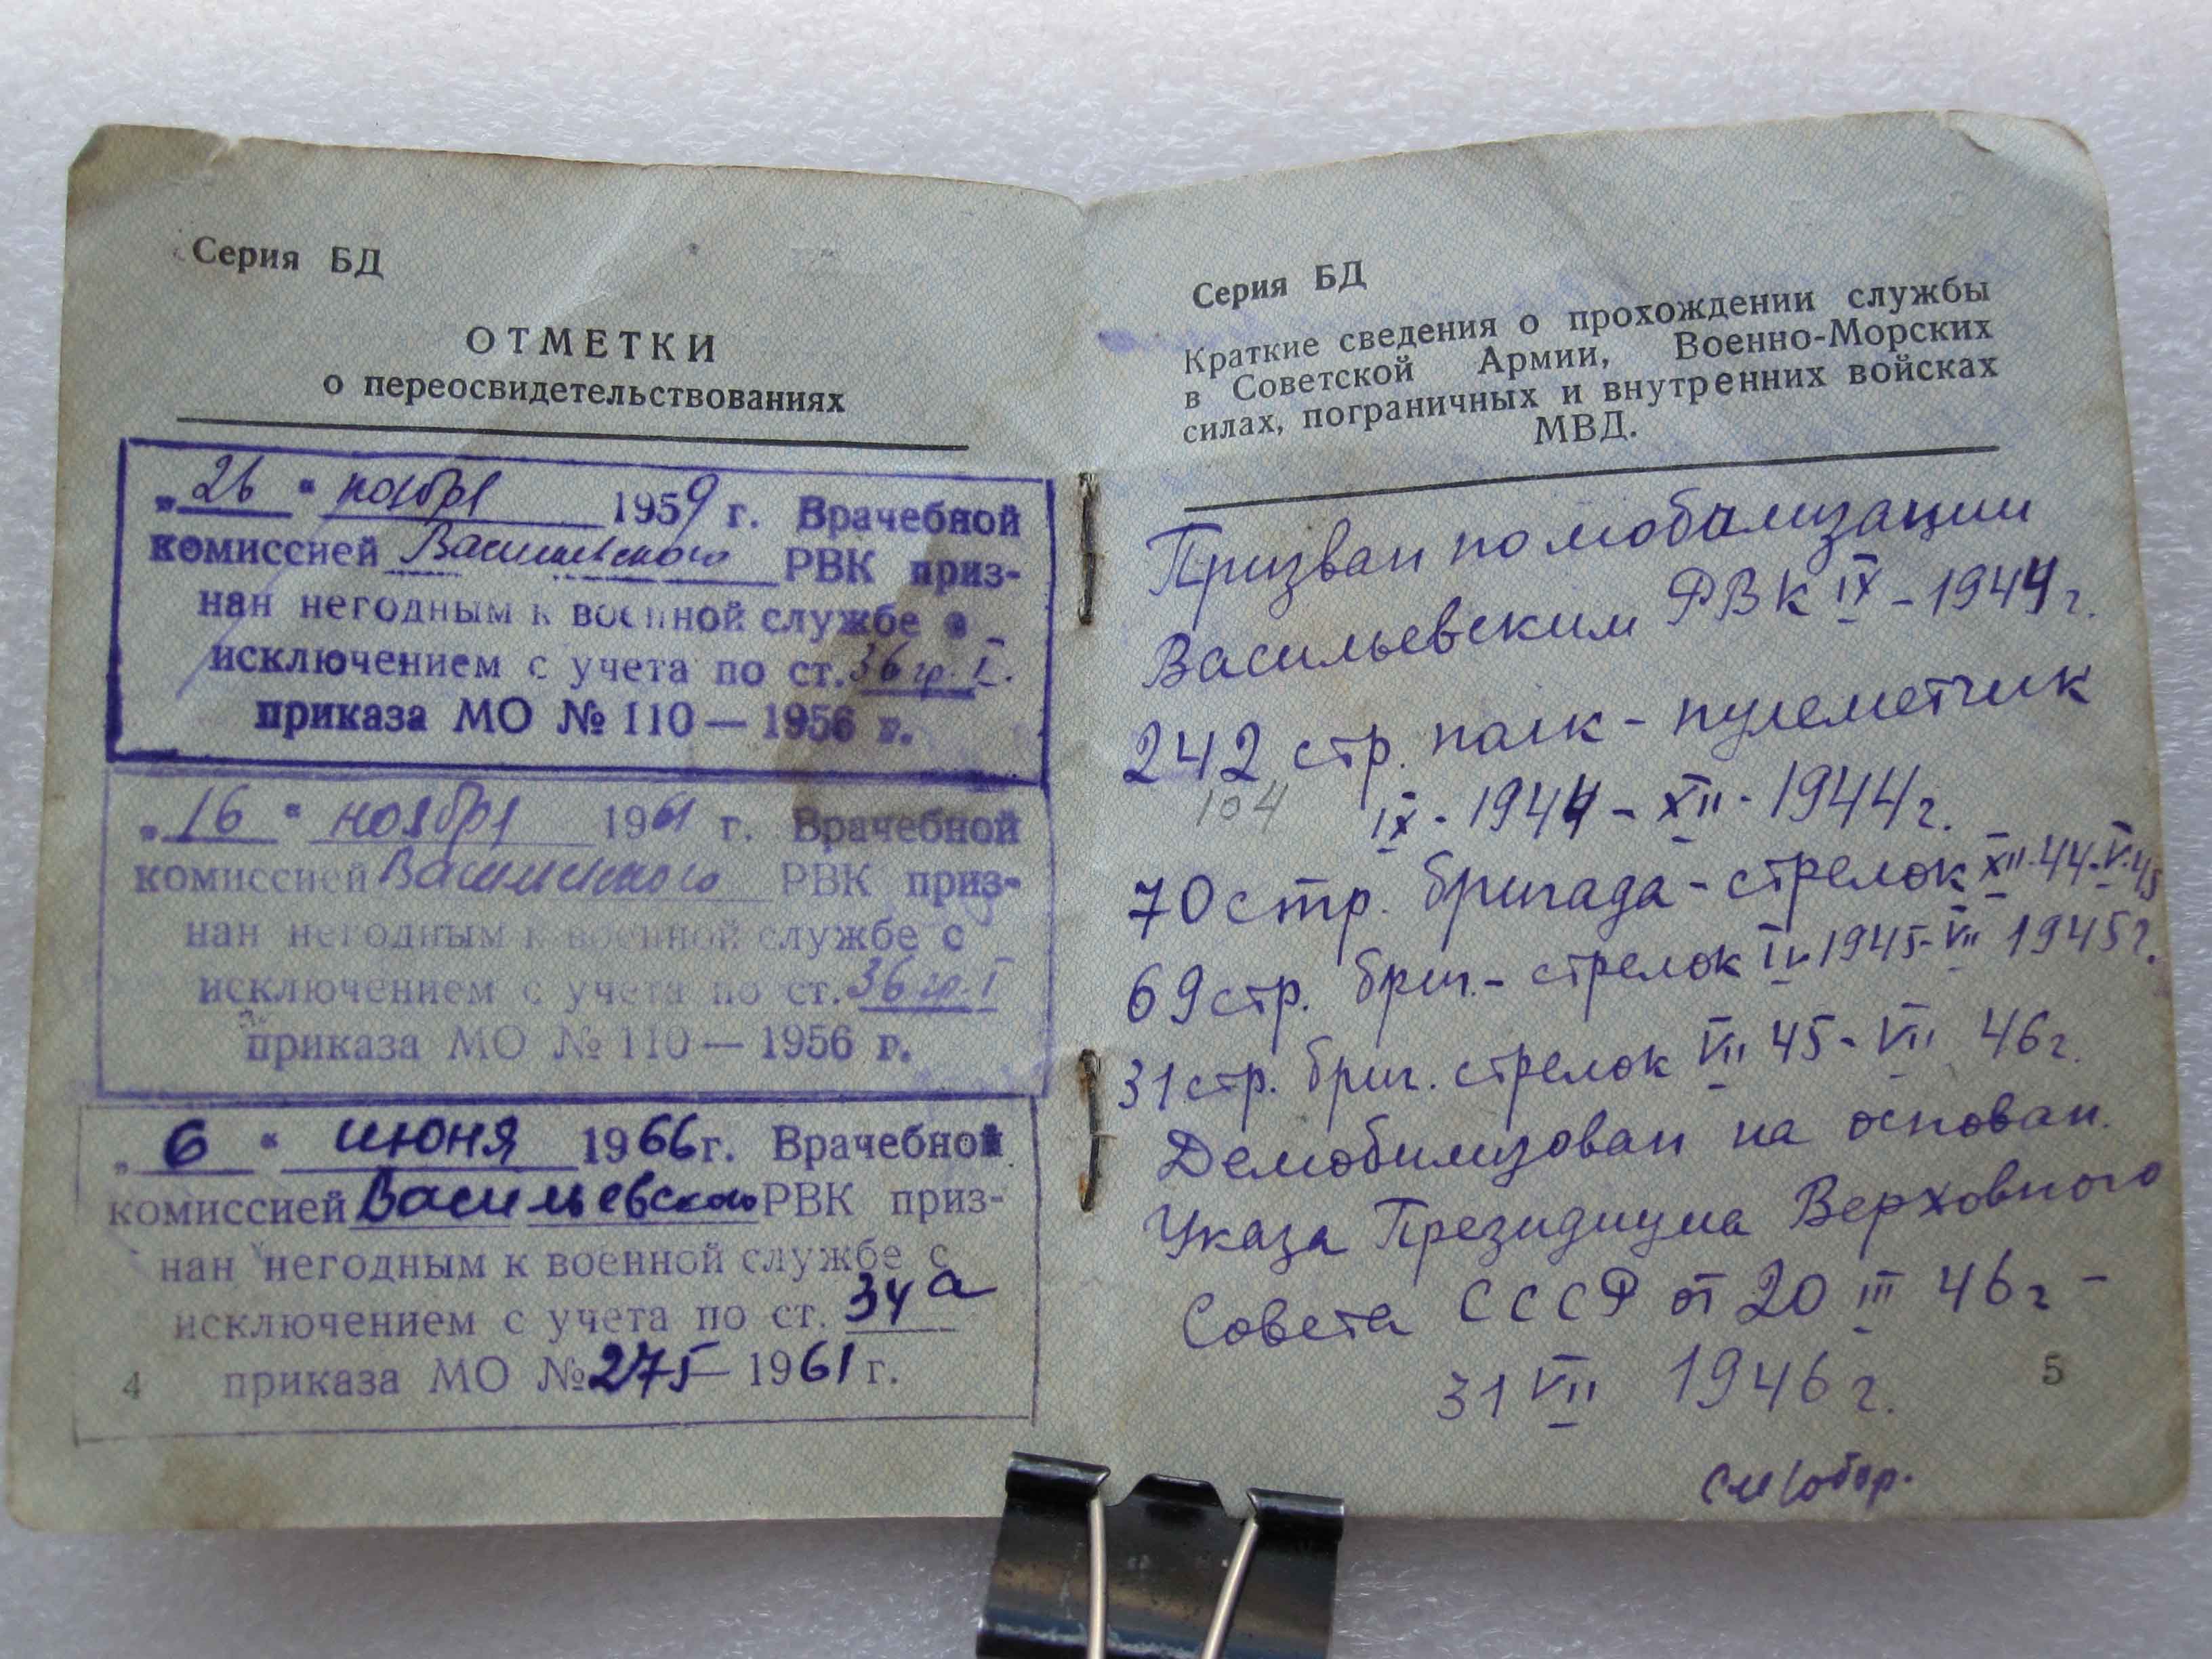 Серия БД
ОТМЕТКИ
о переосвидетельствованиях
„26" ноября 1959 г. Врачебной
комиссией Васильевского РВК приз-
нан негодным к военной службе с
исключением с учета по ст. 36 гр. I.
приказа МО № 110 — 1956 г.
„16" ноября 1961 г. Врачебной
комиссией Васильевского РВК приз-
нан негодным к военной службе с
исключением с учета по ст. 36 гр. I
приказа МО № 110 — 1956 г.
„6" июня 1966 г. Врачебной
комиссией Васильевского РВК приз-
нан негодным к военной службе с
исключением с учета по ст. 34а
приказа МО № 275 — 1961 г.
4
Серия БД
Краткие сведения о прохождении службы
в Советской Армии, Военно-Морских
силах, пограничных и внутренних войсках
МВД.
Призван по мобилизации
Васильевским РВК IX - 1944 г.
242 стр. полк - пулеметчик
104 IX - 1944 - XII - 1944 г.
70 стр. бригада - стрелок XII-44-V-45
69 стр. бриг. - стрелок IV 1945-VII 1945 г.
31 стр. бриг. стрелок VII 45 - VII 46 г.
Демобилизован на основан.
Указа Президиума Верховного
Совета СССР от 20 III 46 г -
31 VII 1946 г.
5